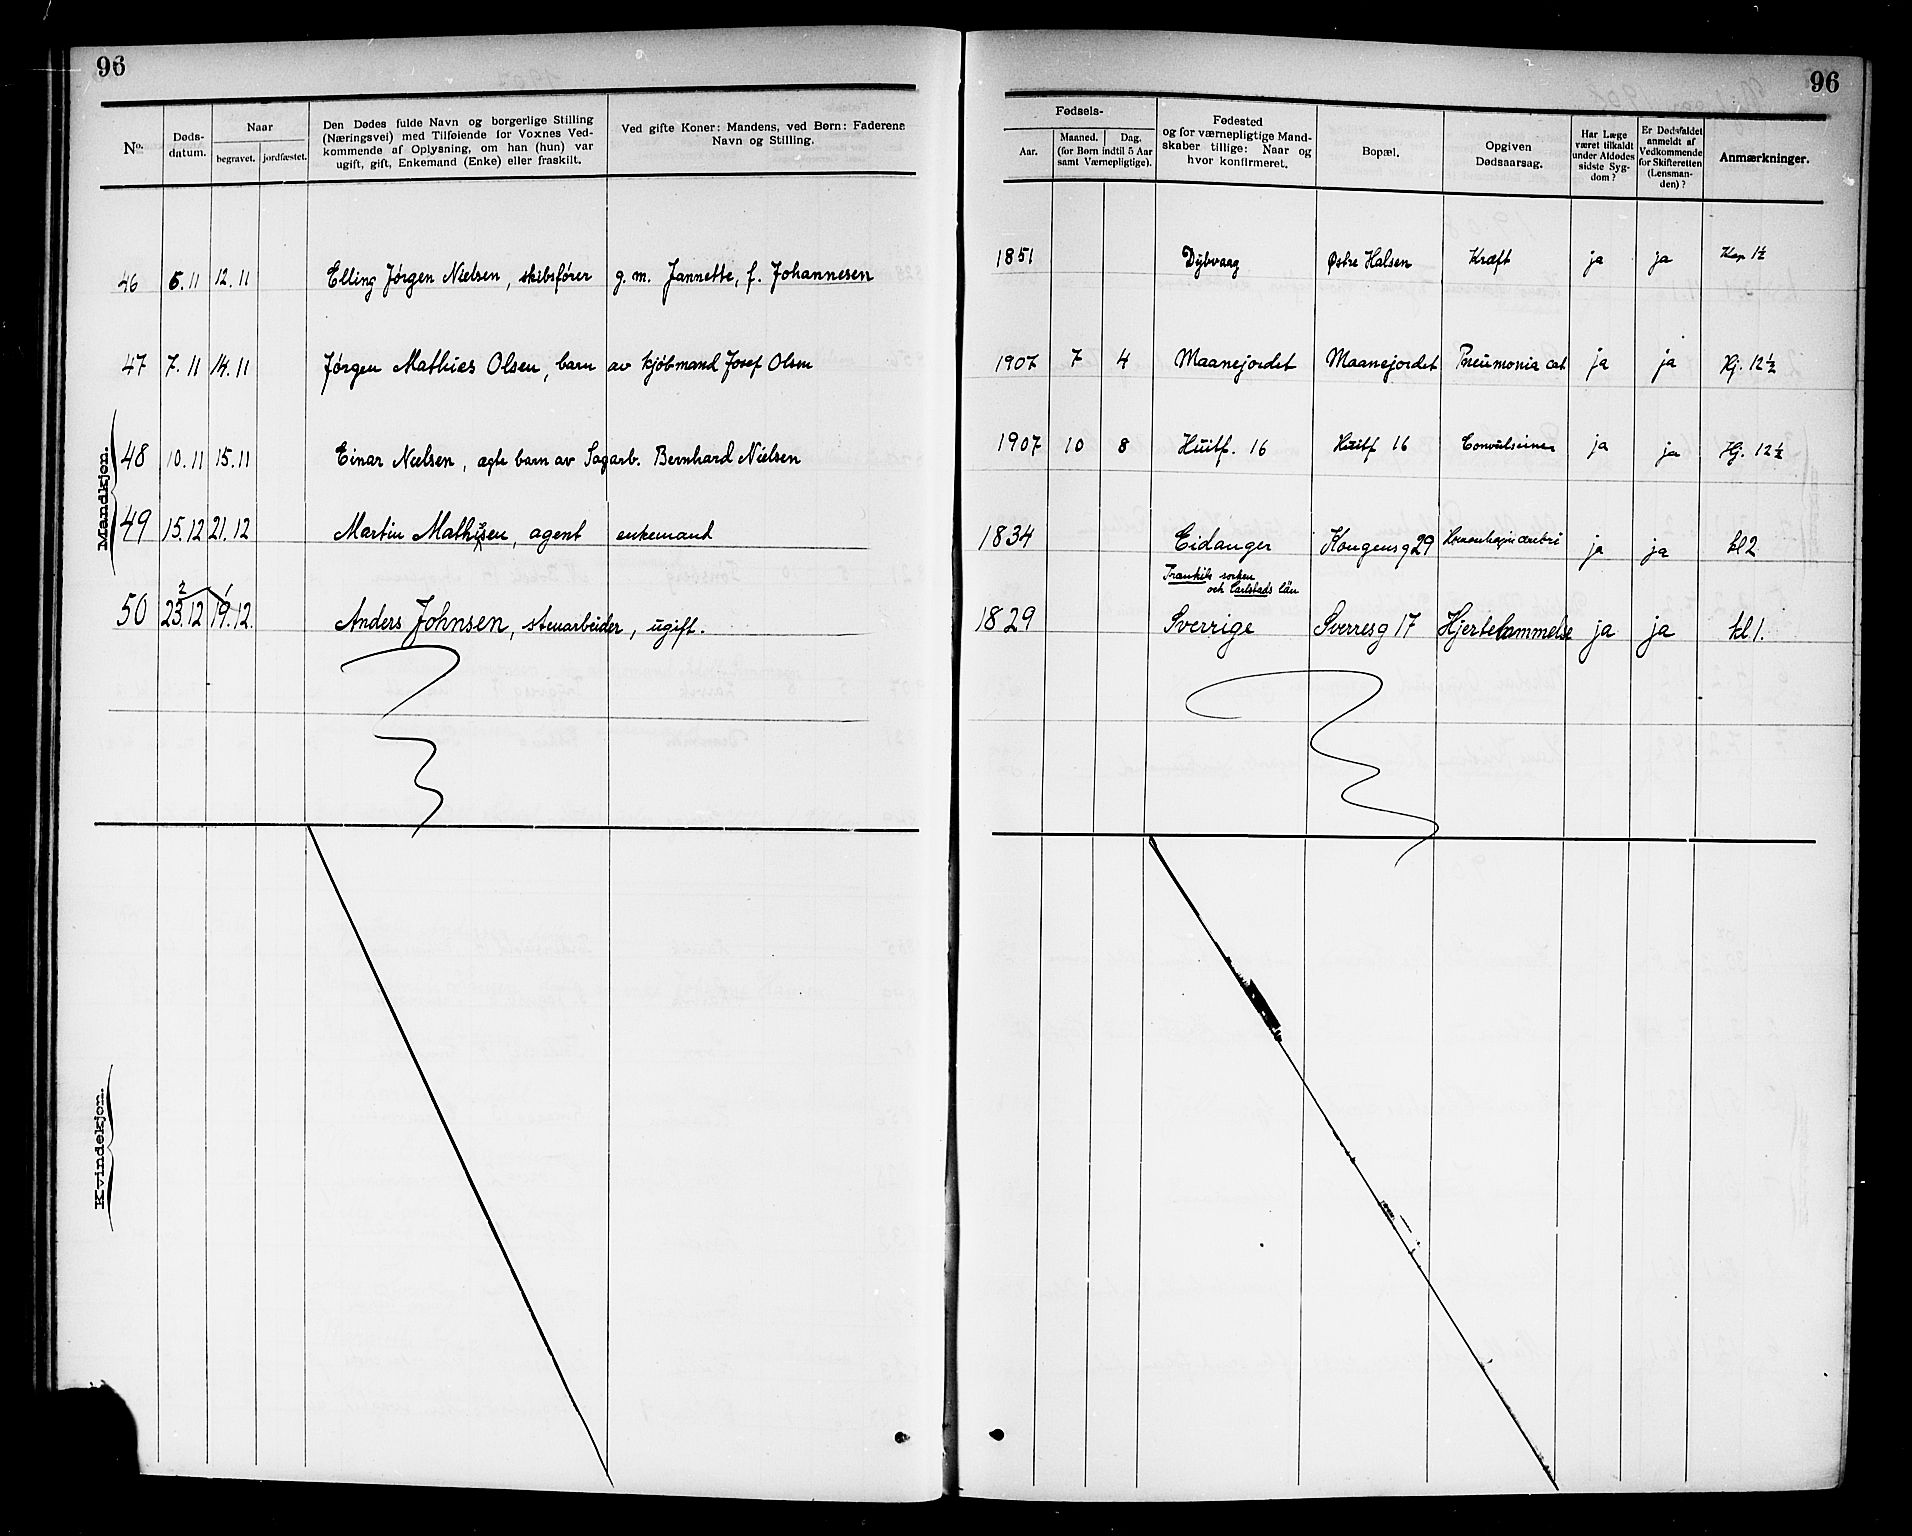 96
96
No.
Døds-
datum.
Naar
begravet. jordfæstet.
Den Dødes fulde Navn og borgerlige Stilling
(Næringsvei) med Tilføiende for Voxnes Ved-
kommende af Oplysning, om han (hun) var
ugift, gift, Enkemand (Enke) eller fraskilt.
Ved gifte Koner: Mandens, ved Børn: Faderens
Navn og Stilling.
Fødsels-
Aar.
Maaned. Dag.
(for Børn indtil 5 Aar
samt Værnepligtige).
Fødested
og for værnepligtige Mand-
skaber tillige: Naar og
hvor konfirmeret.
Bopæl.
Opgiven
Dødsaarsag.
Har Læge
været tilkaldt
under Afdødes
sidste Syg-
dom?
Er Dødsfaldet
anmeldt af
Vedkommende
for Skifteretten
(Lensman-
den)?
Anmærkninger.
Mandkjøn.
46 6.11 12.11 Elling Jørgen Nielsen, skibsfører g. m. Jannette, f. Johannesen 1851 Dybvaag Østre Halsen Kræft ja ja Kap 1½
47 7.11 14.11 Jørgen Mathies Olsen, barn av kjøbmand Josef Olsen 1907 7 4 Maanejordet Maanejordet Pneumonia cat ja ja Kj. 12½
48 10.11 15.11 Einar Nielsen, ægte barn av Sagarb. Bernhard Nielsen 1907 10 8 Huitf. 16 Huitf 16 ja ja Hj. 12½
49 15.12 21.12 Martin Mathisen, agent enkemand 1834 Eidanger Kongensg 29 ja ja kl 2
socken
och Carlstads län
50 23.12 19.12. Anders Johnsen, stenarbeider, ugift. 1829 Sverrige Sverresg 17 Hjertelammelse ja ja kl 1.
2 1
Kvindekjøn.